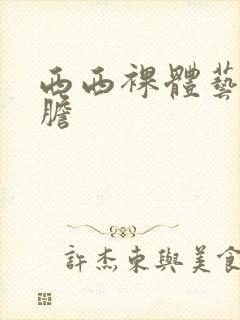 西西裸體藝
膽
許杰東與美食